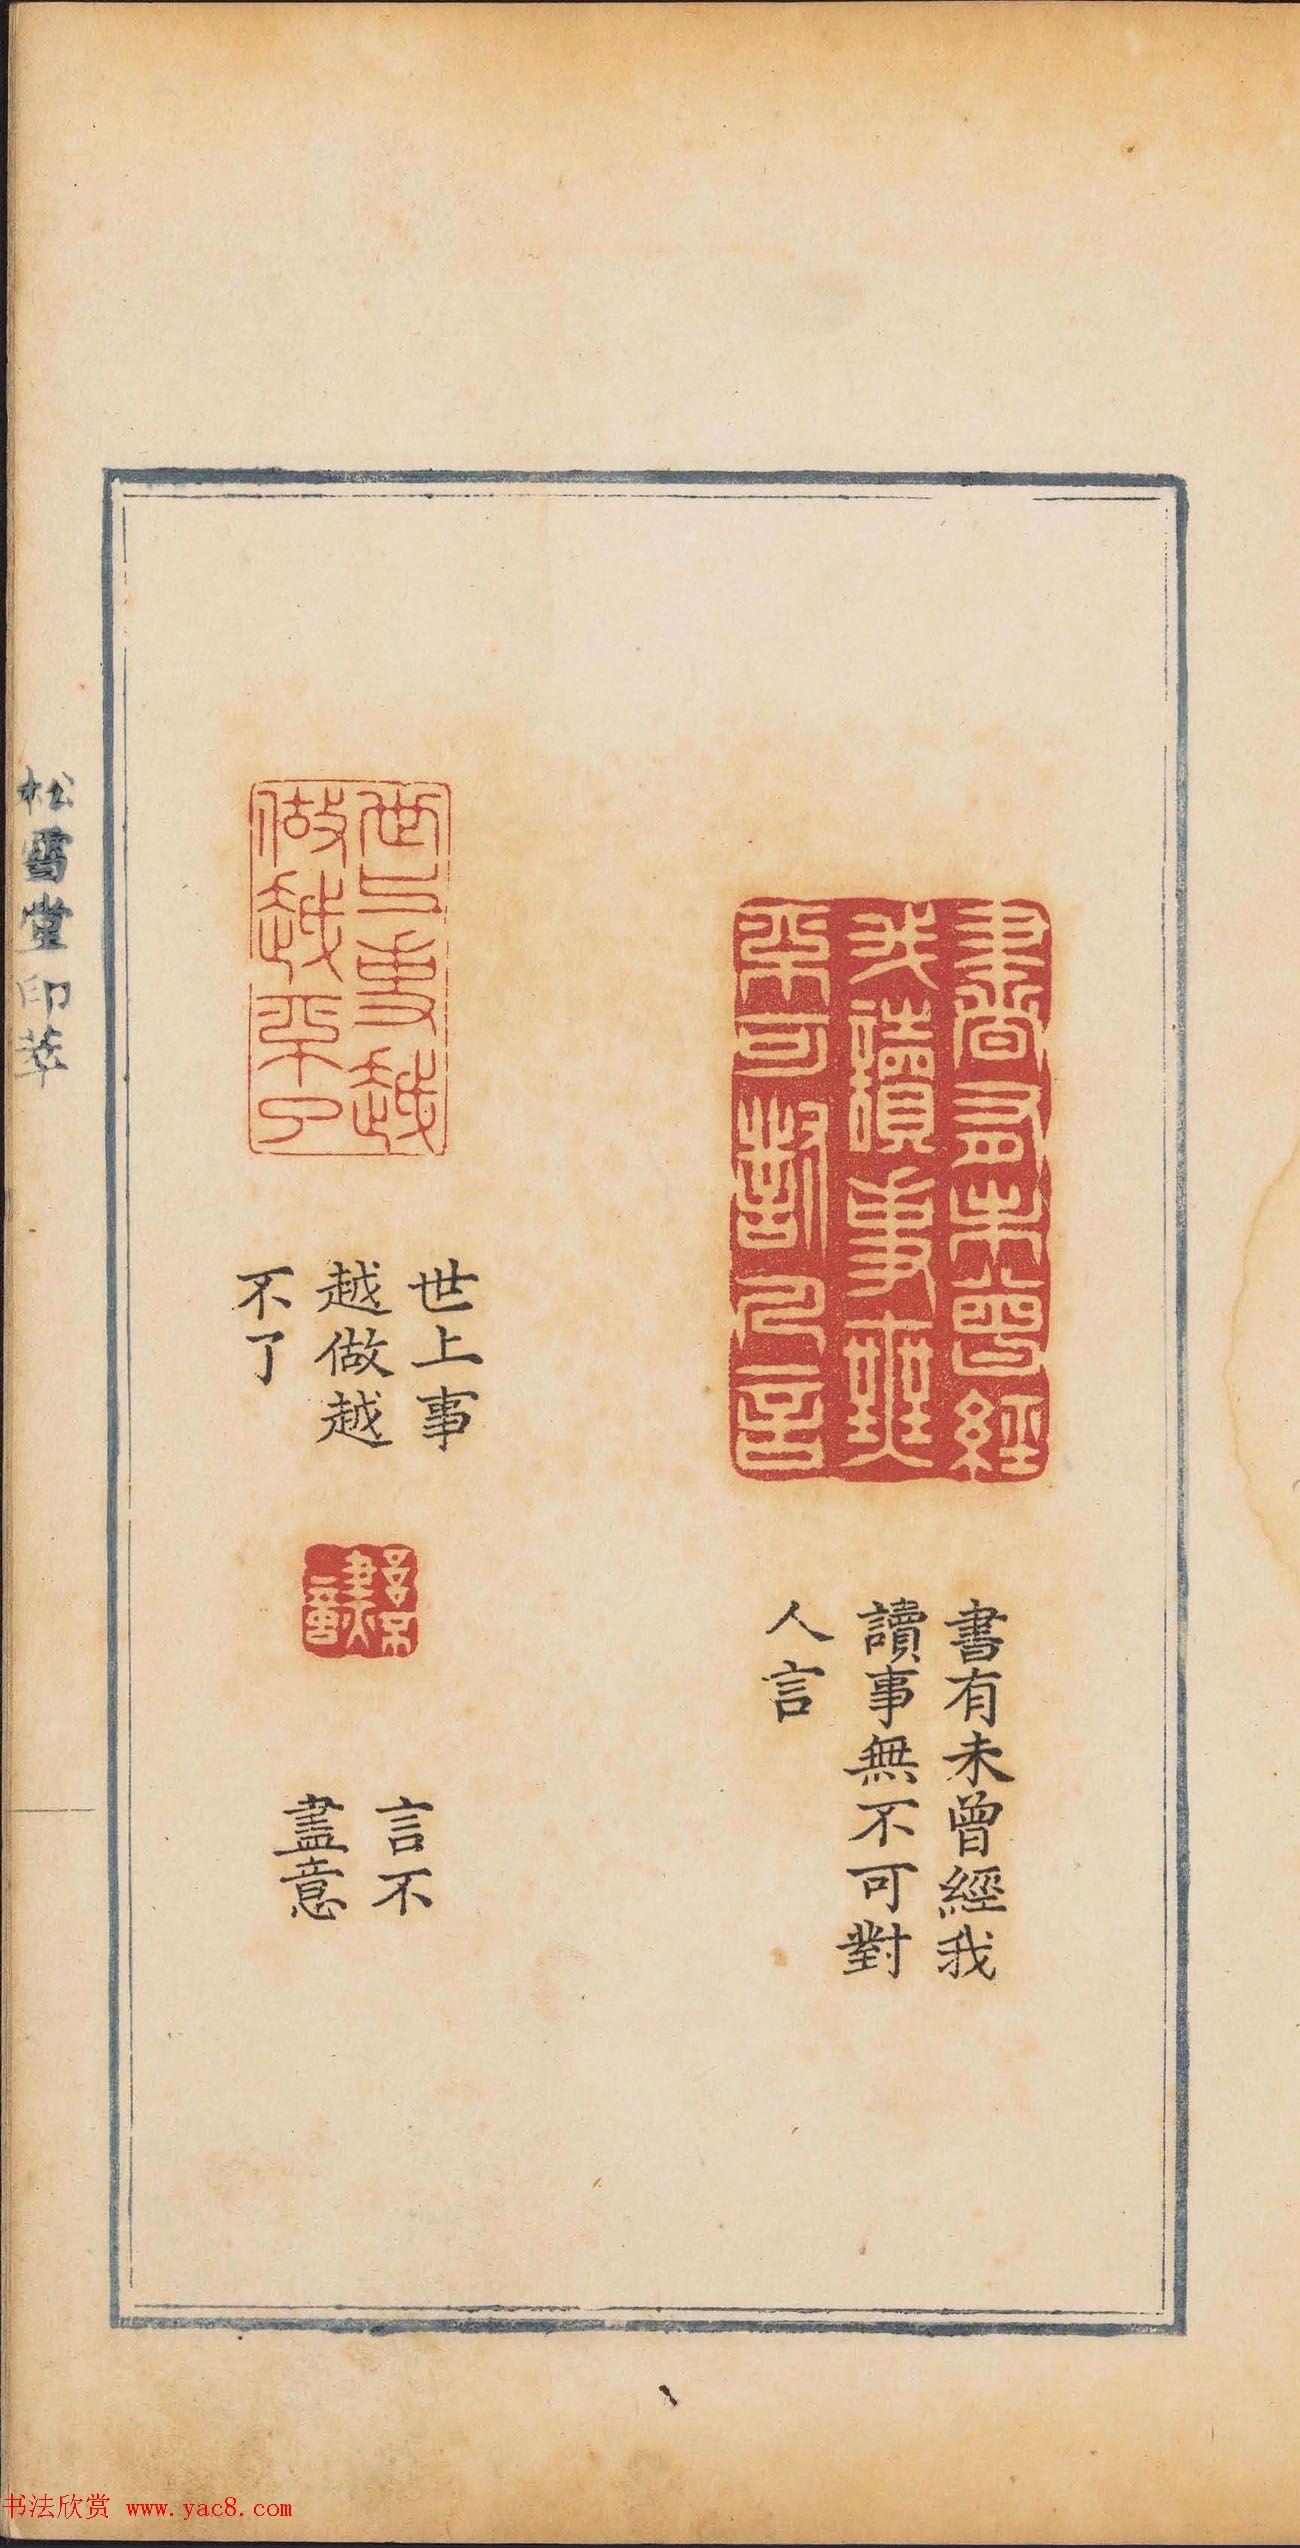 書有未曾經我讀事無不可對人言
書有未曾經我
讀事無不可對
人言
世上事越做越不了
世上事
越做越
不了
言不盡意
言不
盡意
松雪堂印萃
书法欣赏 www.yac8.com